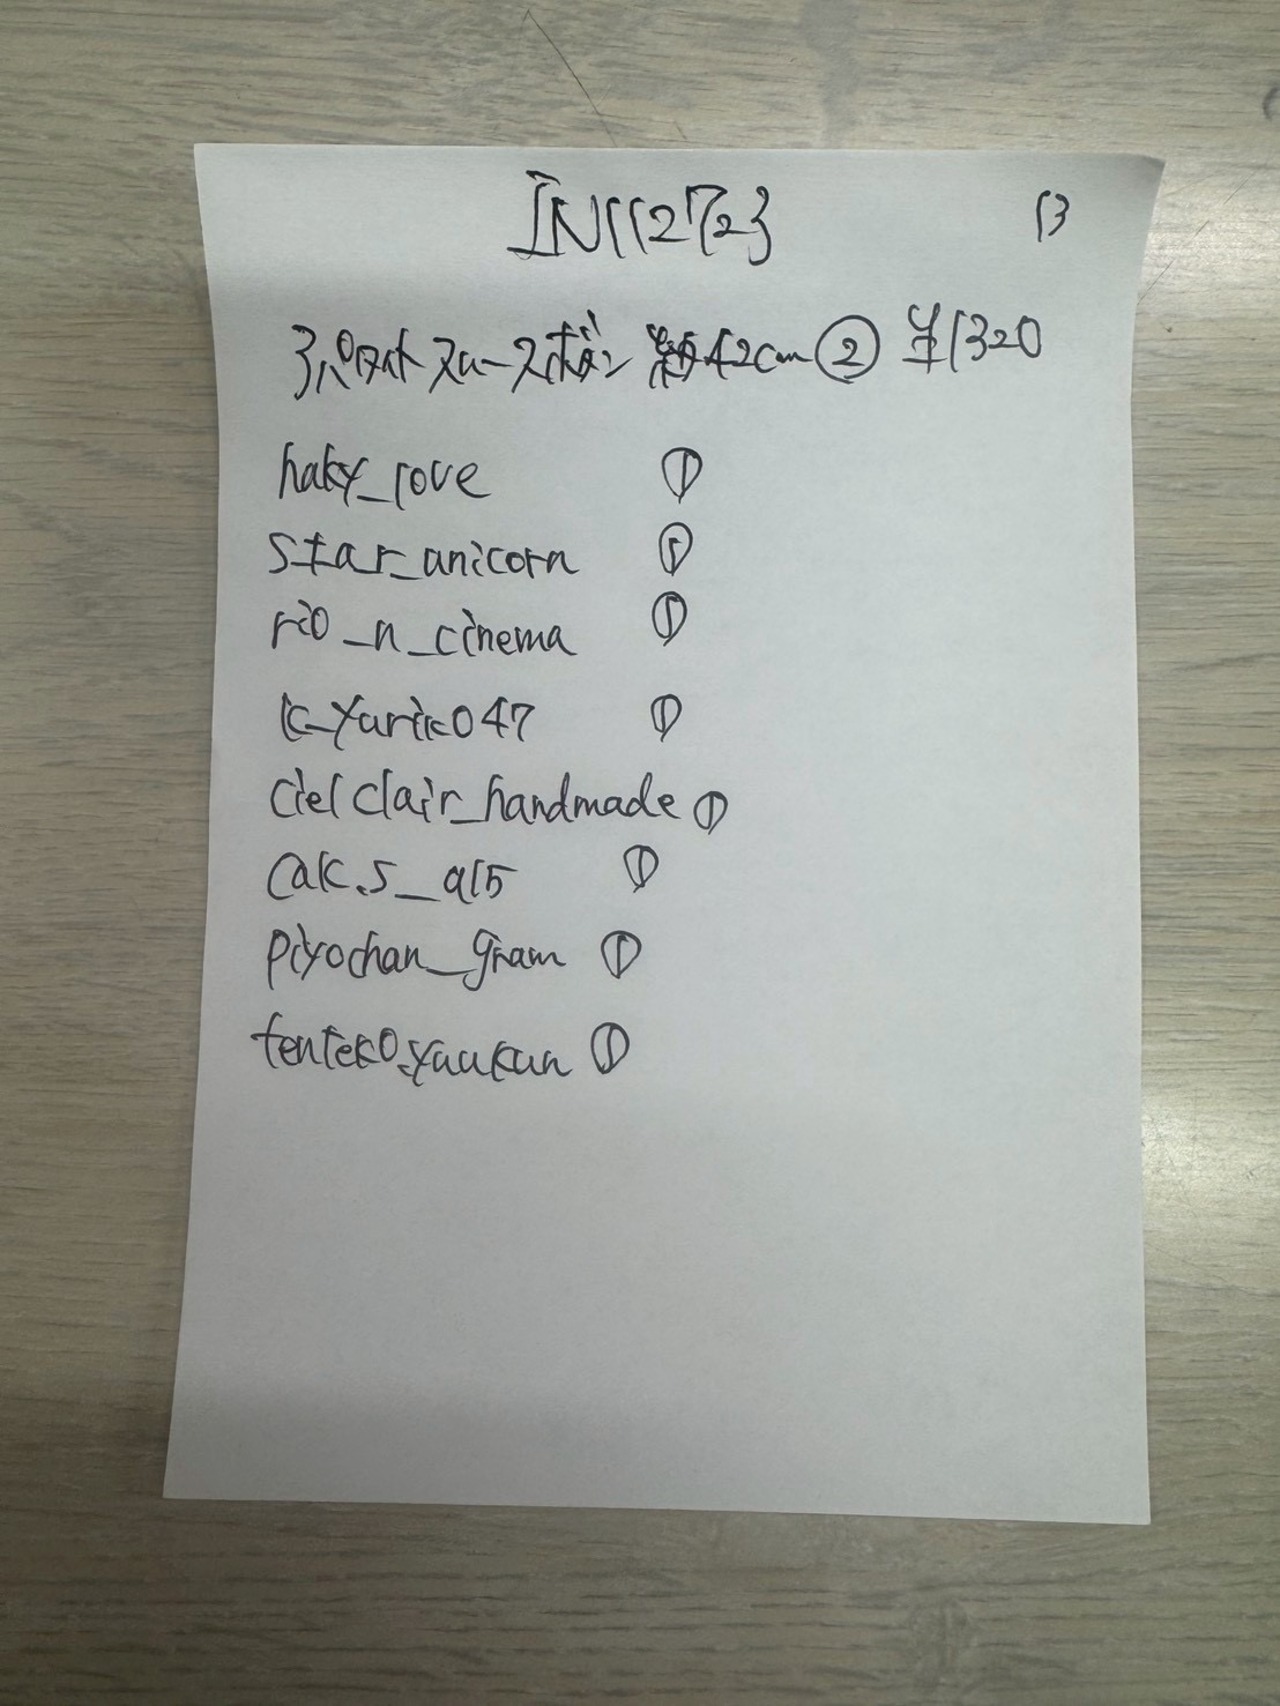 IN112723 13
42cm ② ¥1320
haky_rove ①
star_unicorn ①
rio_n_cinema ①
k_yuriko47 ①
cielclair_handmade ①
cak.s_a15 ①
piyochan_gram ①
tenteko.yuukun ①